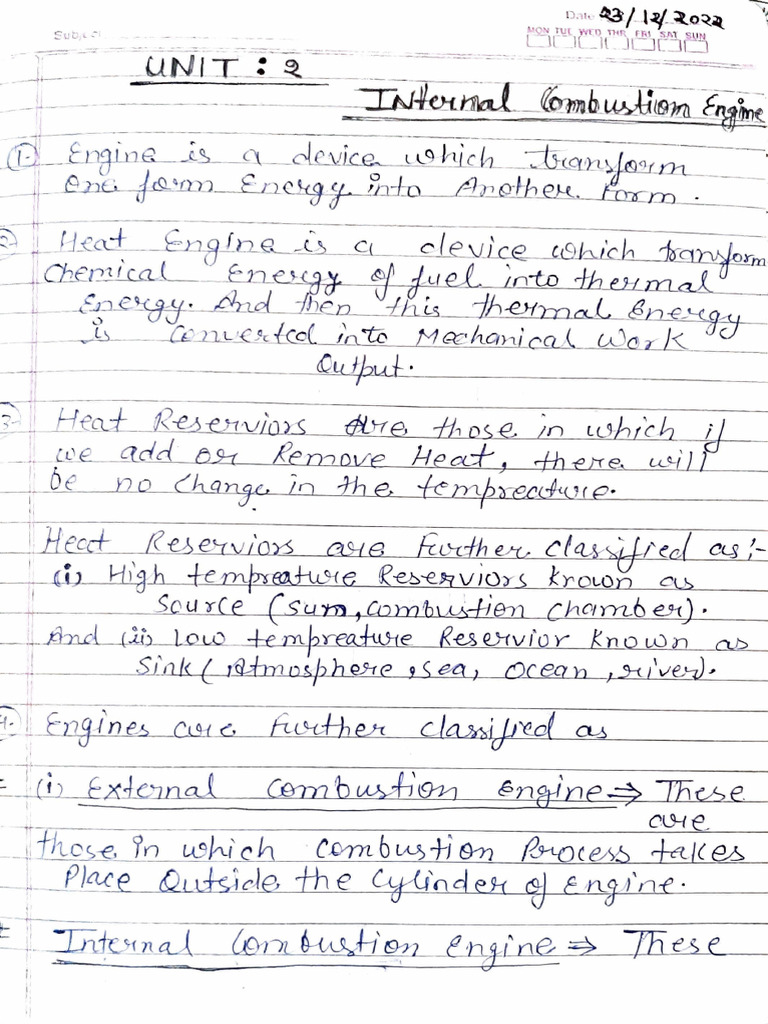 Subject
Date 23/12/2022
MON TUE WED THR FRI SAT SUN
UNIT : 2
Internal Combustion Engine
1. Engine is a device which transform
one form Energy into Another Form.
2. Heat Engine is a device which transform
Chemical Energy of fuel into thermal
Energy. And then this thermal Energy
is converted into Mechanical Work
Output.
3. Heat Reserviors are those in which if
we add or Remove Heat, there will
be no change in the tempreature.
Heat Reserviors are Further classified as:-
(i) High tempreature Reserviors known as
Source (sun, combustion chamber).
And (ii) Low tempreature Reservior known as
Sink (Atmosphere, sea, ocean, river).
4. Engines are Further classified as
(i) External Combustion Engine ⇒ These
are
those in which combustion Process takes
Place Outside the Cylinder of Engine.
Internal Combustion Engine ⇒ These